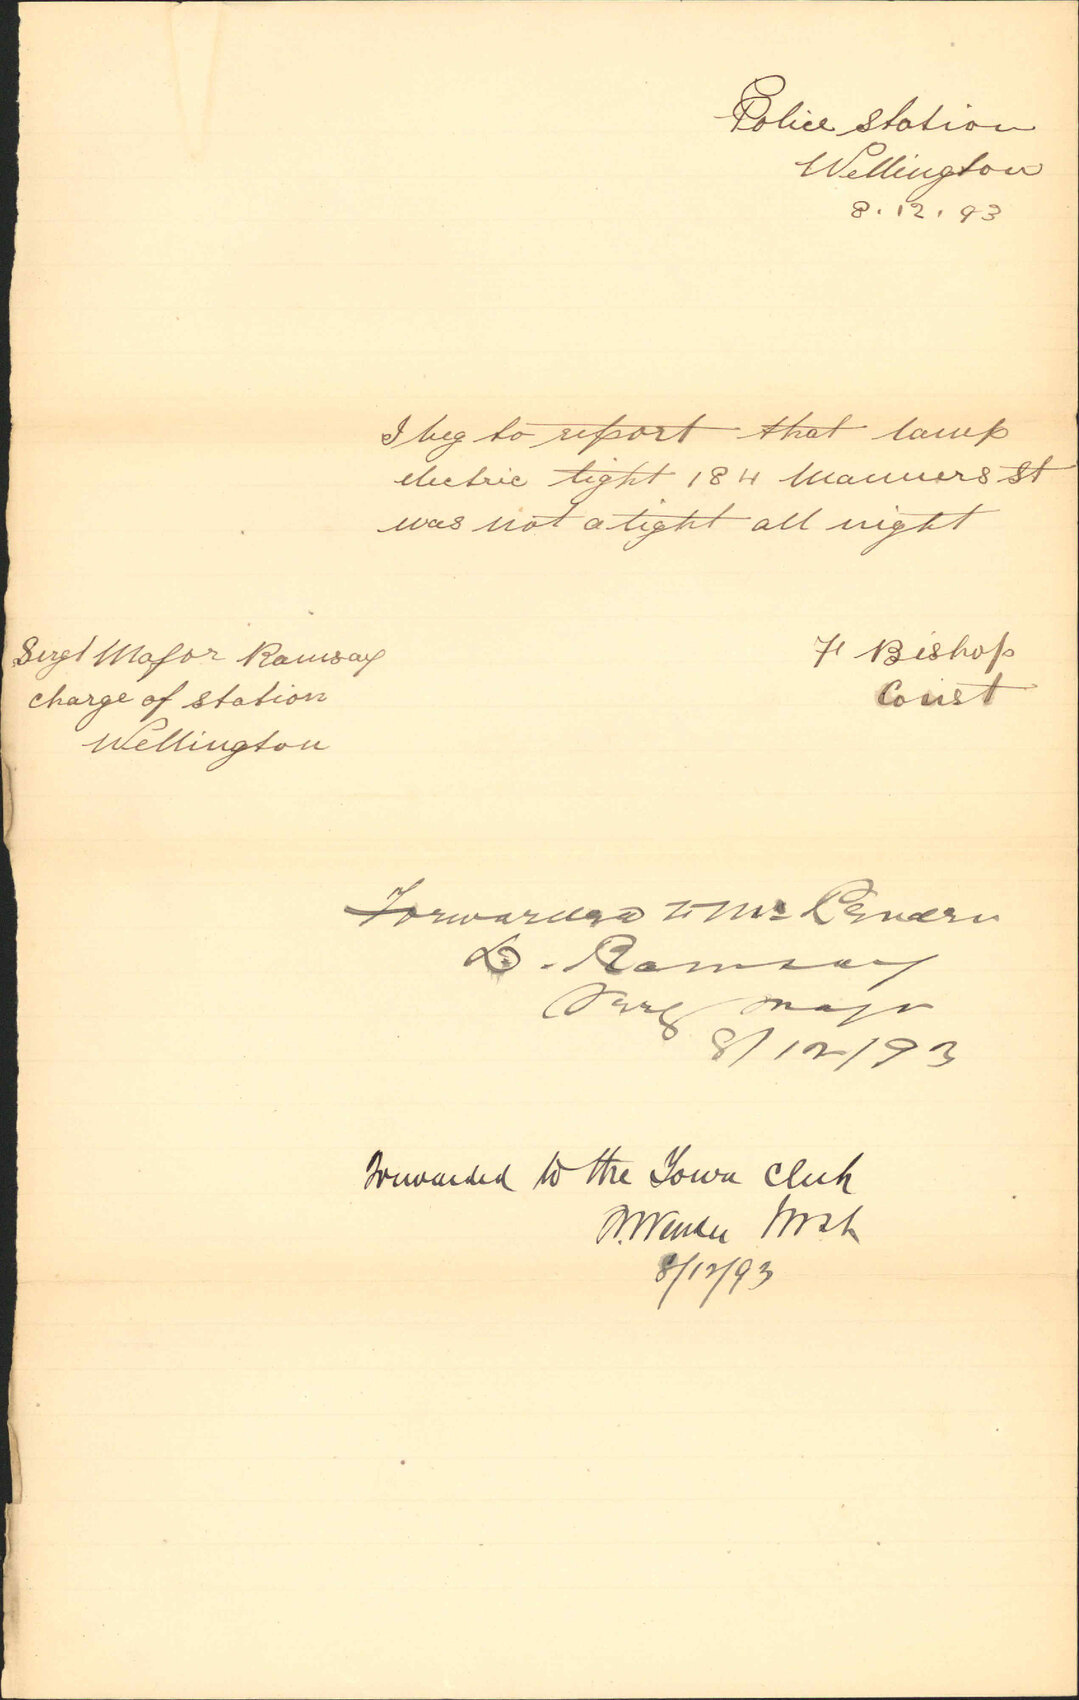 Police Station
Wellington
8.12.93
I beg to report that lamp
electric light 184 Manners St
was not alight all night
F Bishop
Const
Sergt Major Ramsay
charge of station
Wellington
Forwarded to Mr
D. Ramsay
Serg Major
8/12/93
Forwarded to the Town Clerk
8/12/93